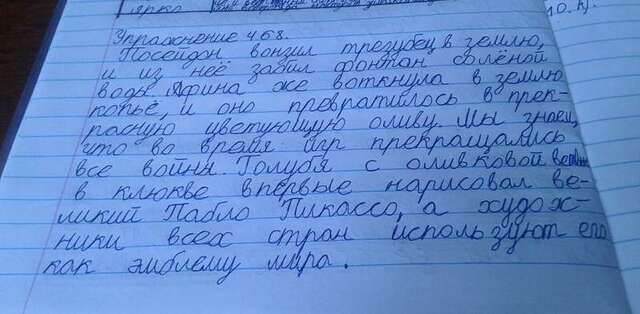 ярко
10. К).
Упражнение 468.
Посейдон вонзил трезубец в землю,
и из неё забил фонтан солёной
воды. Афина же воткнула в землю
копьё, и оно превратилось в прек-
расную цветующую оливу. Мы знаем,
что во время игр прекращались
все войны. Голубя с оливковой
в клюкве впервые нарисовал ве-
ликий Пабло Пикассо, а худож-
ники всех стран используют его
как эмблему мира.